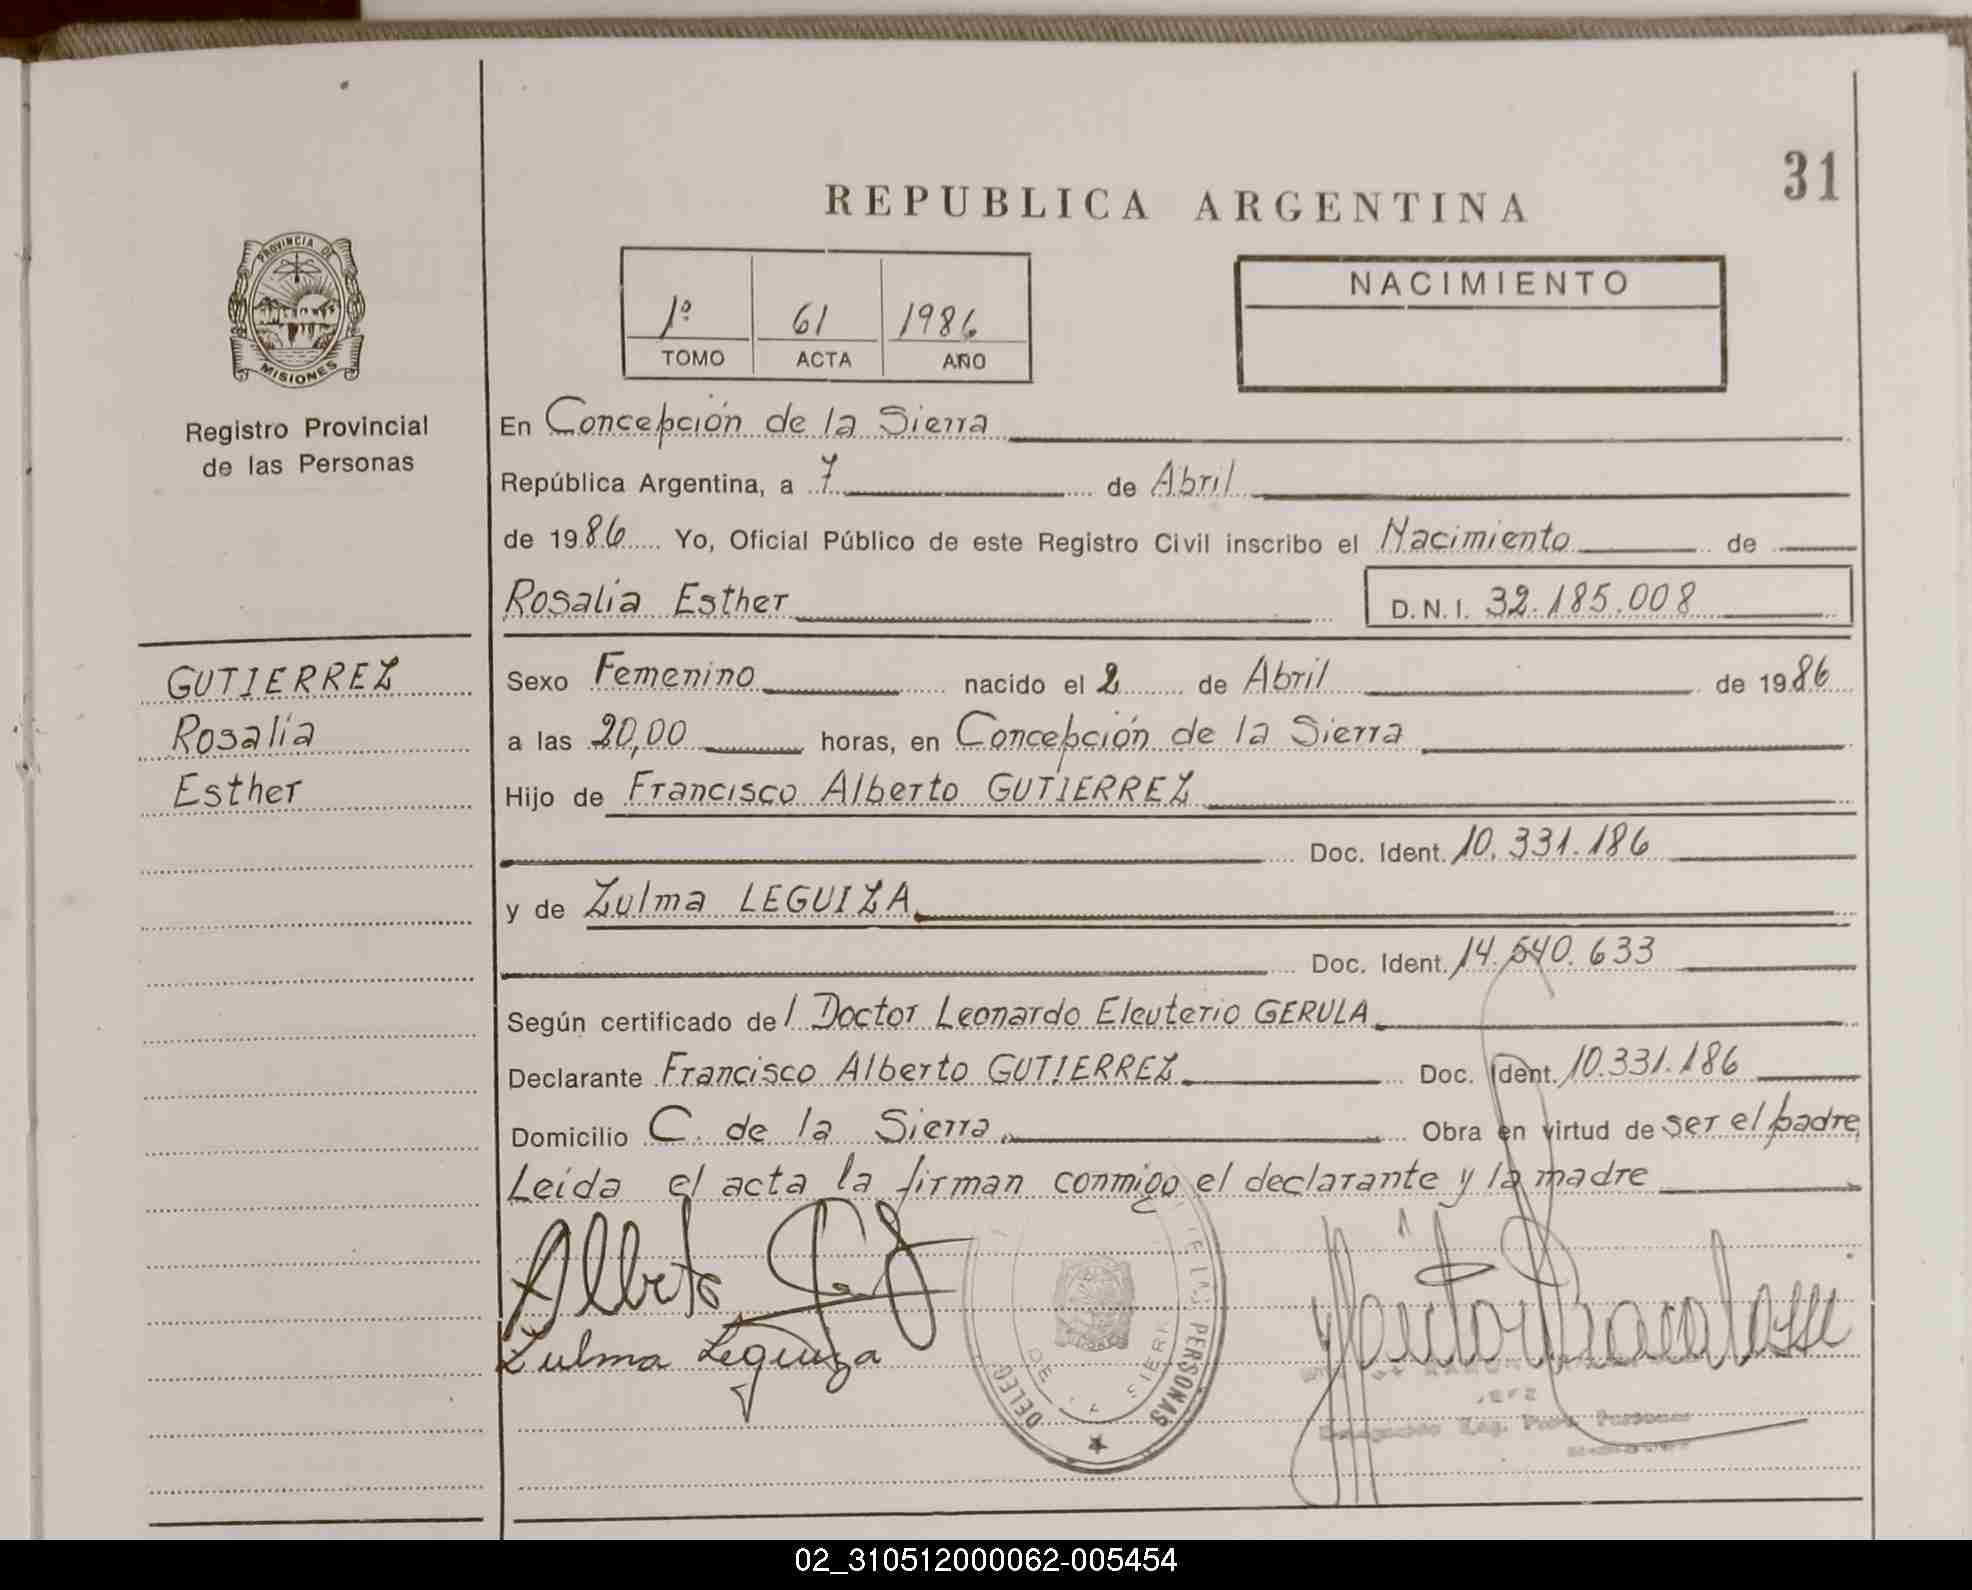 31
REPUBLICA ARGENTINA
PROVINCIA DE
MISIONES
Registro Provincial
de las Personas
1º 61 1986
TOMO ACTA AÑO
NACIMIENTO
En Concepción de la Sierra
República Argentina, a 7 de Abril
de 1986 Yo, Oficial Público de este Registro Civil inscribo el Nacimiento de
Rosalia Esther D.N.I. 32.185.008
GUTIERREZ
Rosalía
Esther
Sexo Femenino nacido el 2 de Abril de 1986
a las 20,00 horas, en Concepción de la Sierra
Hijo de Francisco Alberto GUTIERREZ
Doc. Ident. 10.331.186
y de Zulma LEGUIZA
Doc. Ident. 14.540.633
Según certificado del Doctor Leonardo Eleuterio GERULA
Declarante Francisco Alberto GUTIERREZ Doc. Ident. 10.331.186
Domicilio C. de la Sierra Obra en virtud de ser el padre
Leída el acta la firman conmigo el declarante y la madre
Alberto
Zulma Leguiza
DELEG DE LAS PERSONAS
JEFE
02_310512000062-005454